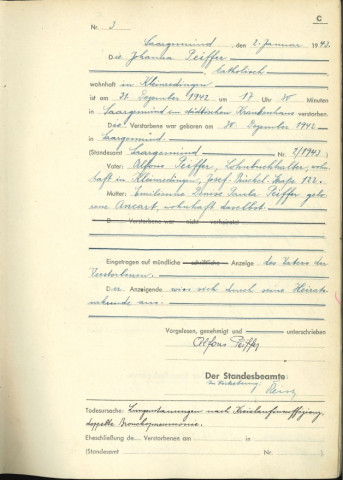 C
Nr. 3
Saargemünd, den 2. Januar 1943.
Die Johanna Peiffer
katholisch
wohnhaft in Kleinredingen
ist am 31. Dezember 1942 um 17 Uhr 30 Minuten
in Saargemünd im städtischen Krankenhaus verstorben.
Die Verstorbene war geboren am 30. Dezember 1942
in Saargemünd
(Standesamt Saargemünd Nr. 2/1943)
Vater: Alfons Peiffer,
haft in Kleinredingen, Josef Straße 122.
Mutter: Emilienne Denise Paula Peiffer gebo-
rene Ancart, wohnhaft daselbst.
D Verstorbene war nicht verheiratet
Eingetragen auf mündliche schriftliche Anzeige des Vaters der
Verstorbenen.
Der Anzeigende wies sich durch seine Heirats-
urkunde aus.
Vorgelesen, genehmigt und unterschrieben
Alfons Peiffer
Der Standesbeamte:
In Vertretung:
Todesursache: nach Kreislaufinsuffizienz,
doppelte Bronchopneumonie.
Eheschließung de... Verstorbenen am in
(Standesamt Nr. )